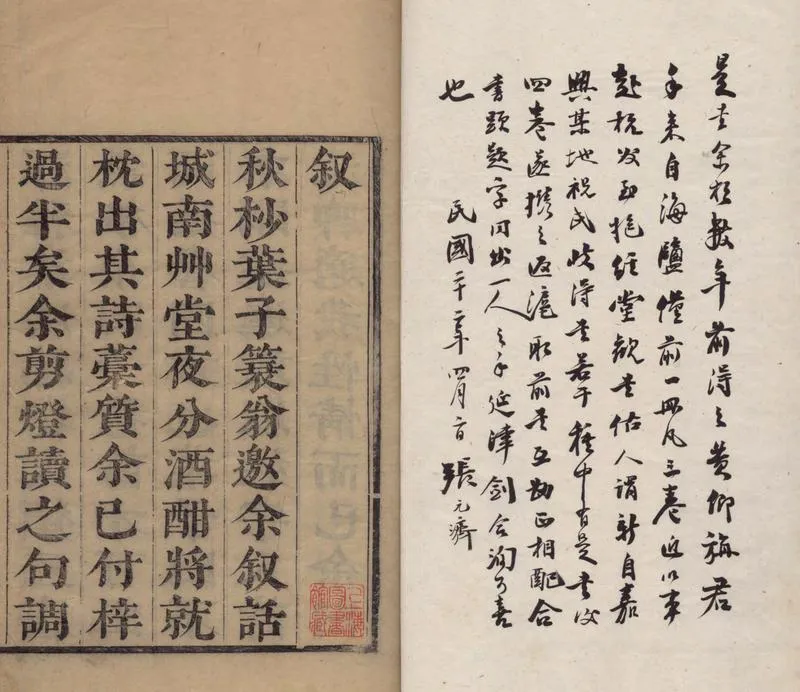 是書余於數年前得之黃仰旃君
手來自海鹽僅前一冊凡三卷近以事
赴杭至抱經堂觀書估人謂新自嘉
興某地祝氏收得書若干種中有是書後
四卷遂攜之返滬取前書互勘正相配合
書頭題字同出一人之手延津劍合洵可喜
也
民國二十二年四月日 張元濟
叙
秋杪葉子蓑翁邀余叙話
城南艸堂夜分酒酣將就
枕出其詩藁質余已付梓
過半矣余剪燈讀之句調
上海圖書館藏